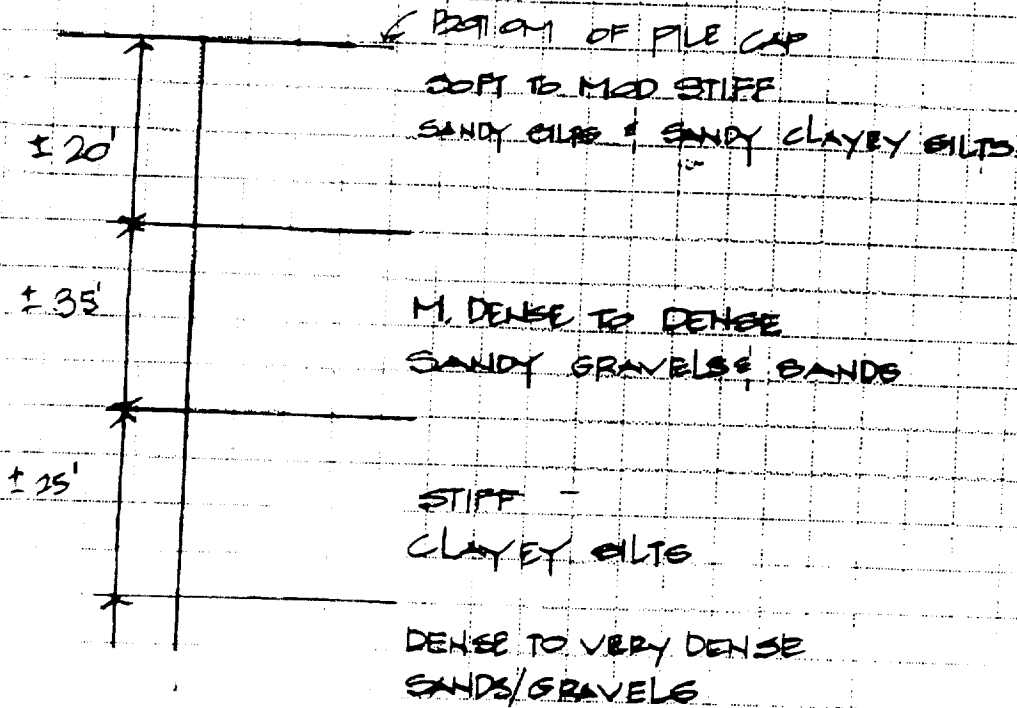 BOTTOM OF PILE CAP
SOFT TO MOD STIFF
SANDY SILTS & SANDY CLAYEY SILTS
± 20'
± 35'
M. DENSE TO DENSE
SANDY GRAVELS & SANDS
± 25'
STIFF -
CLAYEY SILTS
DENSE TO VERY DENSE
SANDS/GRAVELS